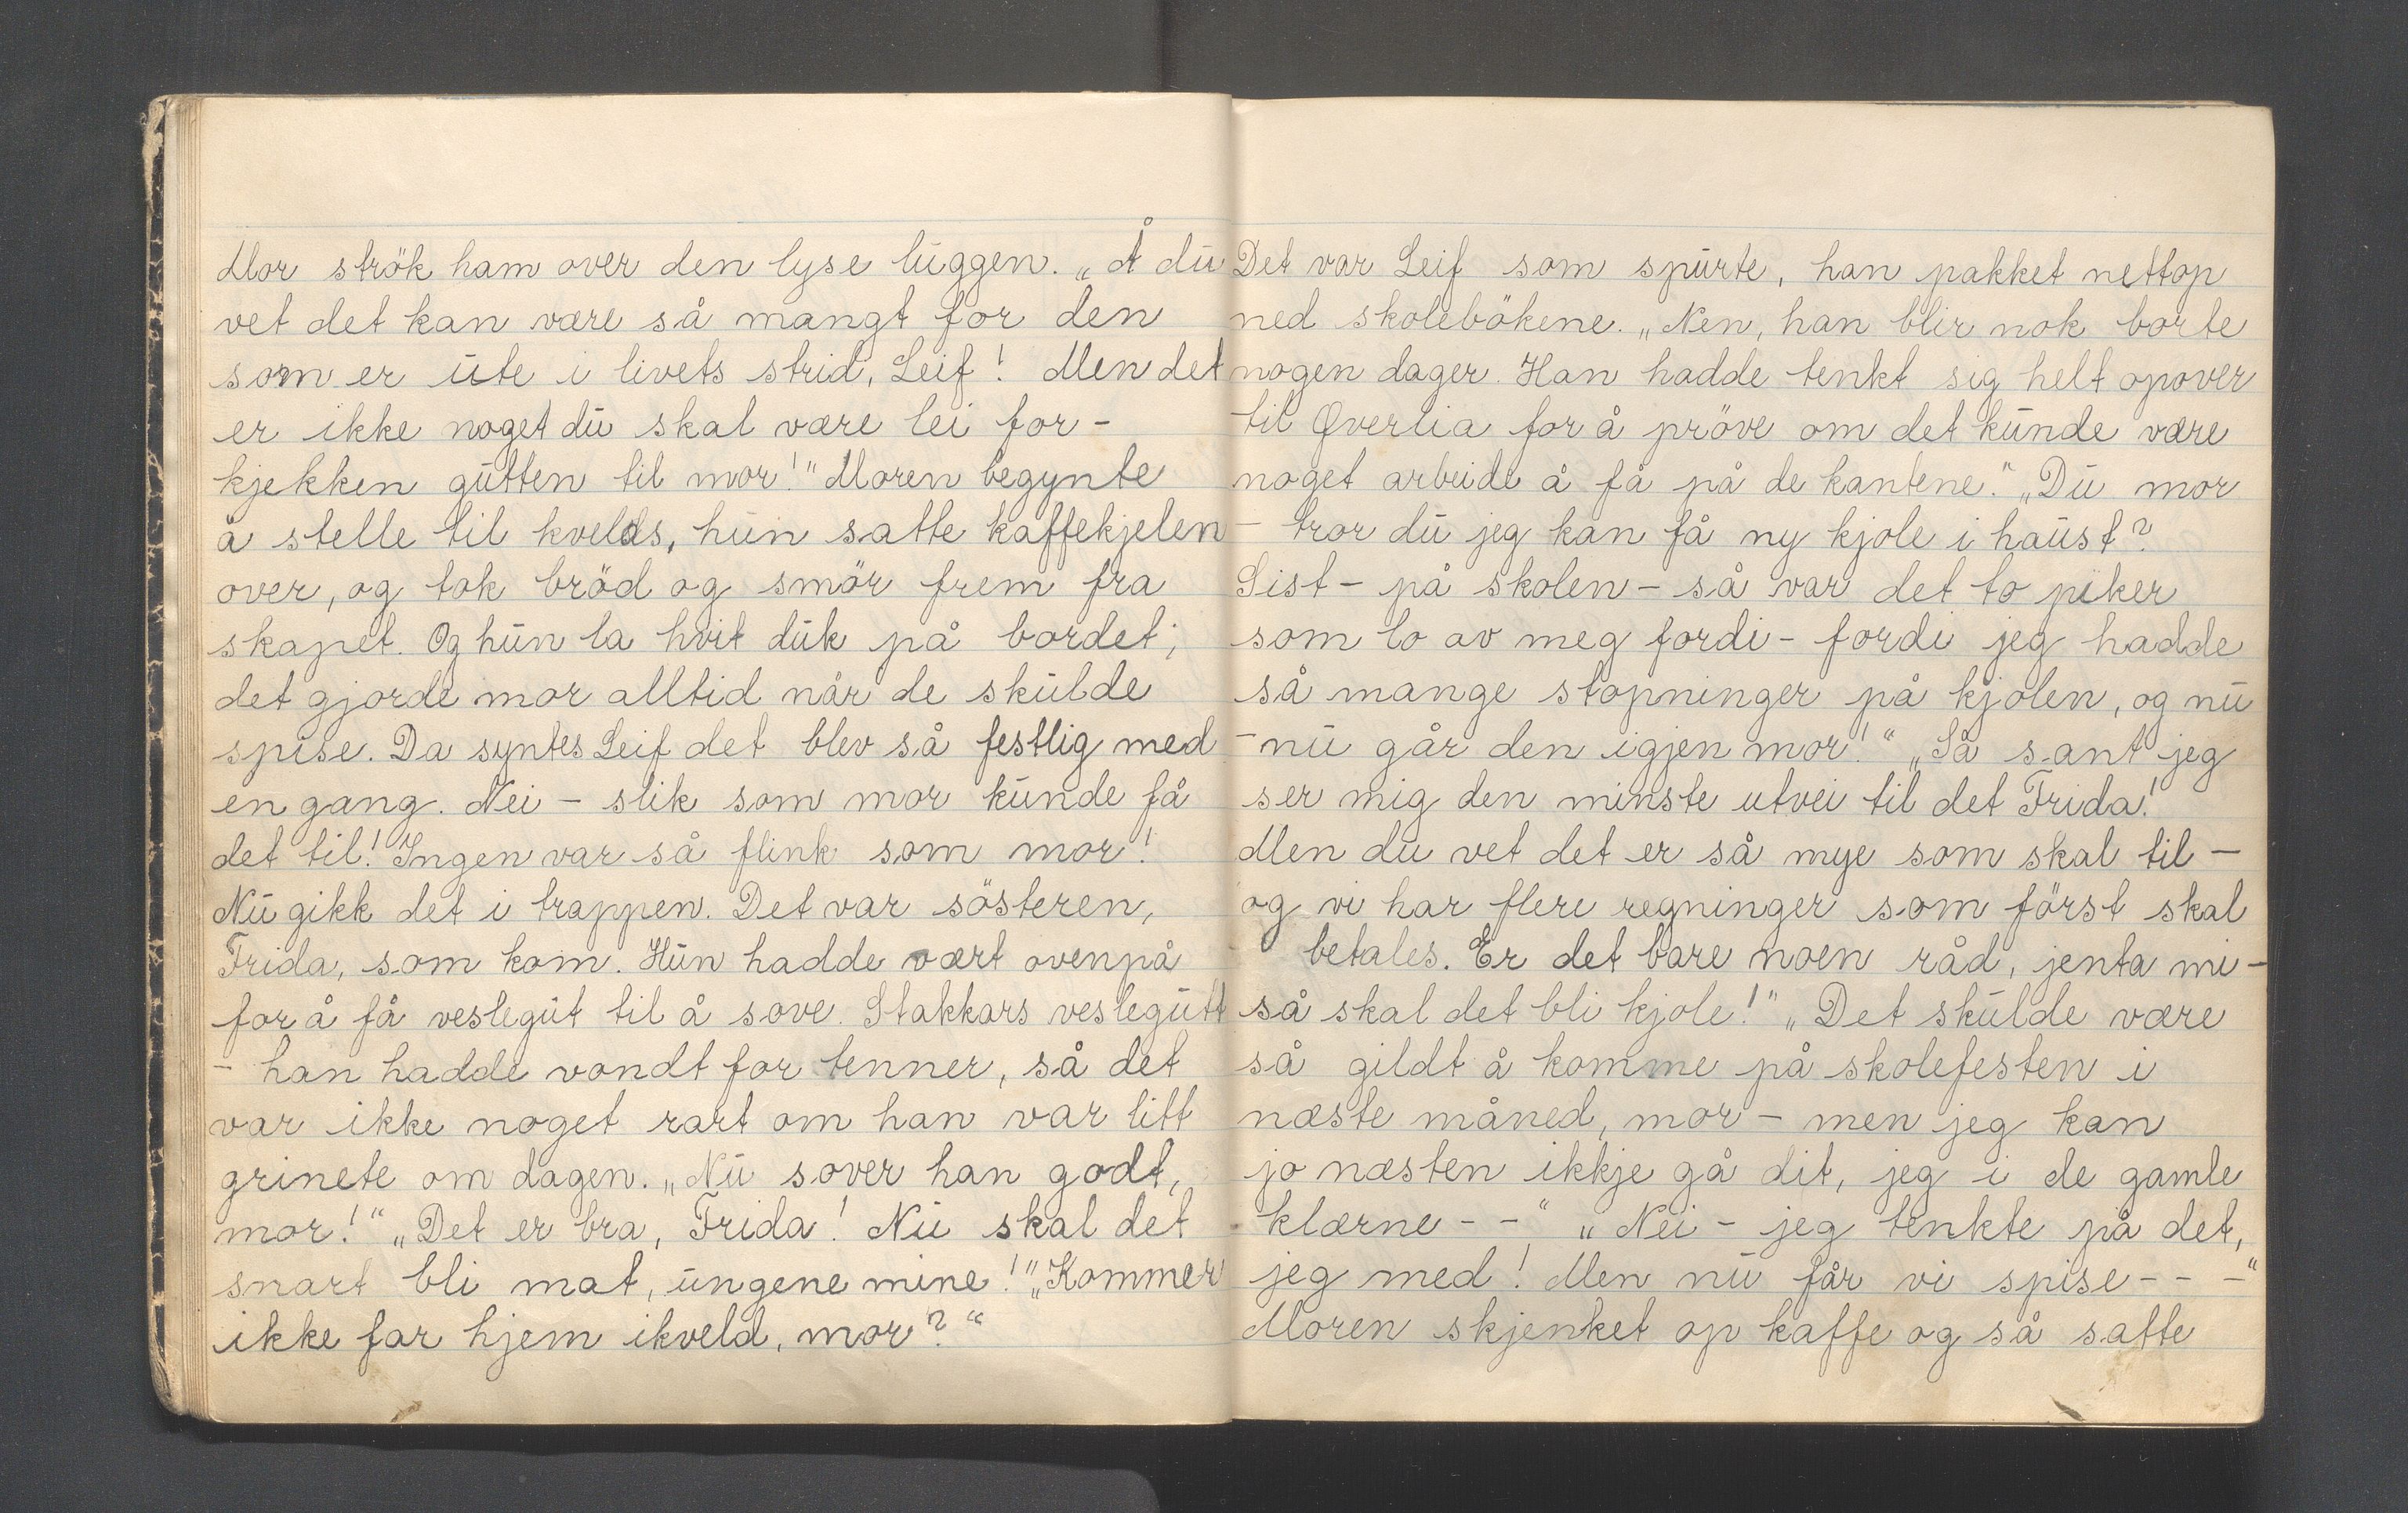 Mor strök ham over den lyse luggen. „Å du
vet det kan være så mangt for den
som er ute i livets strid, Leif! Men det
er ikke noget du skal være lei for -
kjekken gutten til mor!" Moren begynte
å stelle til kvelds, hun satte kaffekjelen
over, og tok bröd og smör frem fra
skapet. Og hun la hvit duk på bordet;
det gjorde mor alltid når de skulde
spise. Da syntes Leif det blev så festlig med
en gang. Nei - slik som mor kunde få
det til! Ingen var så flink som mor!
Nu gikk det i trappen. Det var sösteren,
Frida, som kom. Hun hadde vært ovenpå
for å få veslegut til å sove. Stakkars veslegutt
- han hadde vondt for tenner, så det
var ikke noget rart om han var litt
grinete om dagen. „Nu sover han godt,
mor!" „Det er bra, Frida! Nu skal det
snart bli mat, ungene mine!" „Kommer
ikke far hjem ikveld, mor?"
Det var Leif som spurte, han pakket nettop
ned skolebökene. „Nen, han blir nok borte
nogen dager. Han hadde tenkt sig helt opover
til Øverlia for å pröve om det kunde være
noget arbeide å få på de kantene." „Du mor
- tror du jeg kan få ny kjole i haust?
Sist - på skolen - så var det to piker
som lo av meg fordi - fordi jeg hadde
så mange stopninger på kjolen, og nu
- nu går den igjen mor!" „Så sant jeg
ser mig den minste utvei til det Frida!
Men du vet det er så mye som skal til -
og vi har flere regninger som först skal
betales. Er det bare noen råd, jenta mi -
så skal det bli kjole!" „Det skulde være
så gildt å komme på skolefesten i
næste måned, mor - men jeg kan
jo næsten ikkje gå dit, jeg i de gamle
klærne - -" „Nei - jeg tenkte på det,
jeg med! Men nu får vi spise - - -"
Moren skjenket op kaffe og så satte